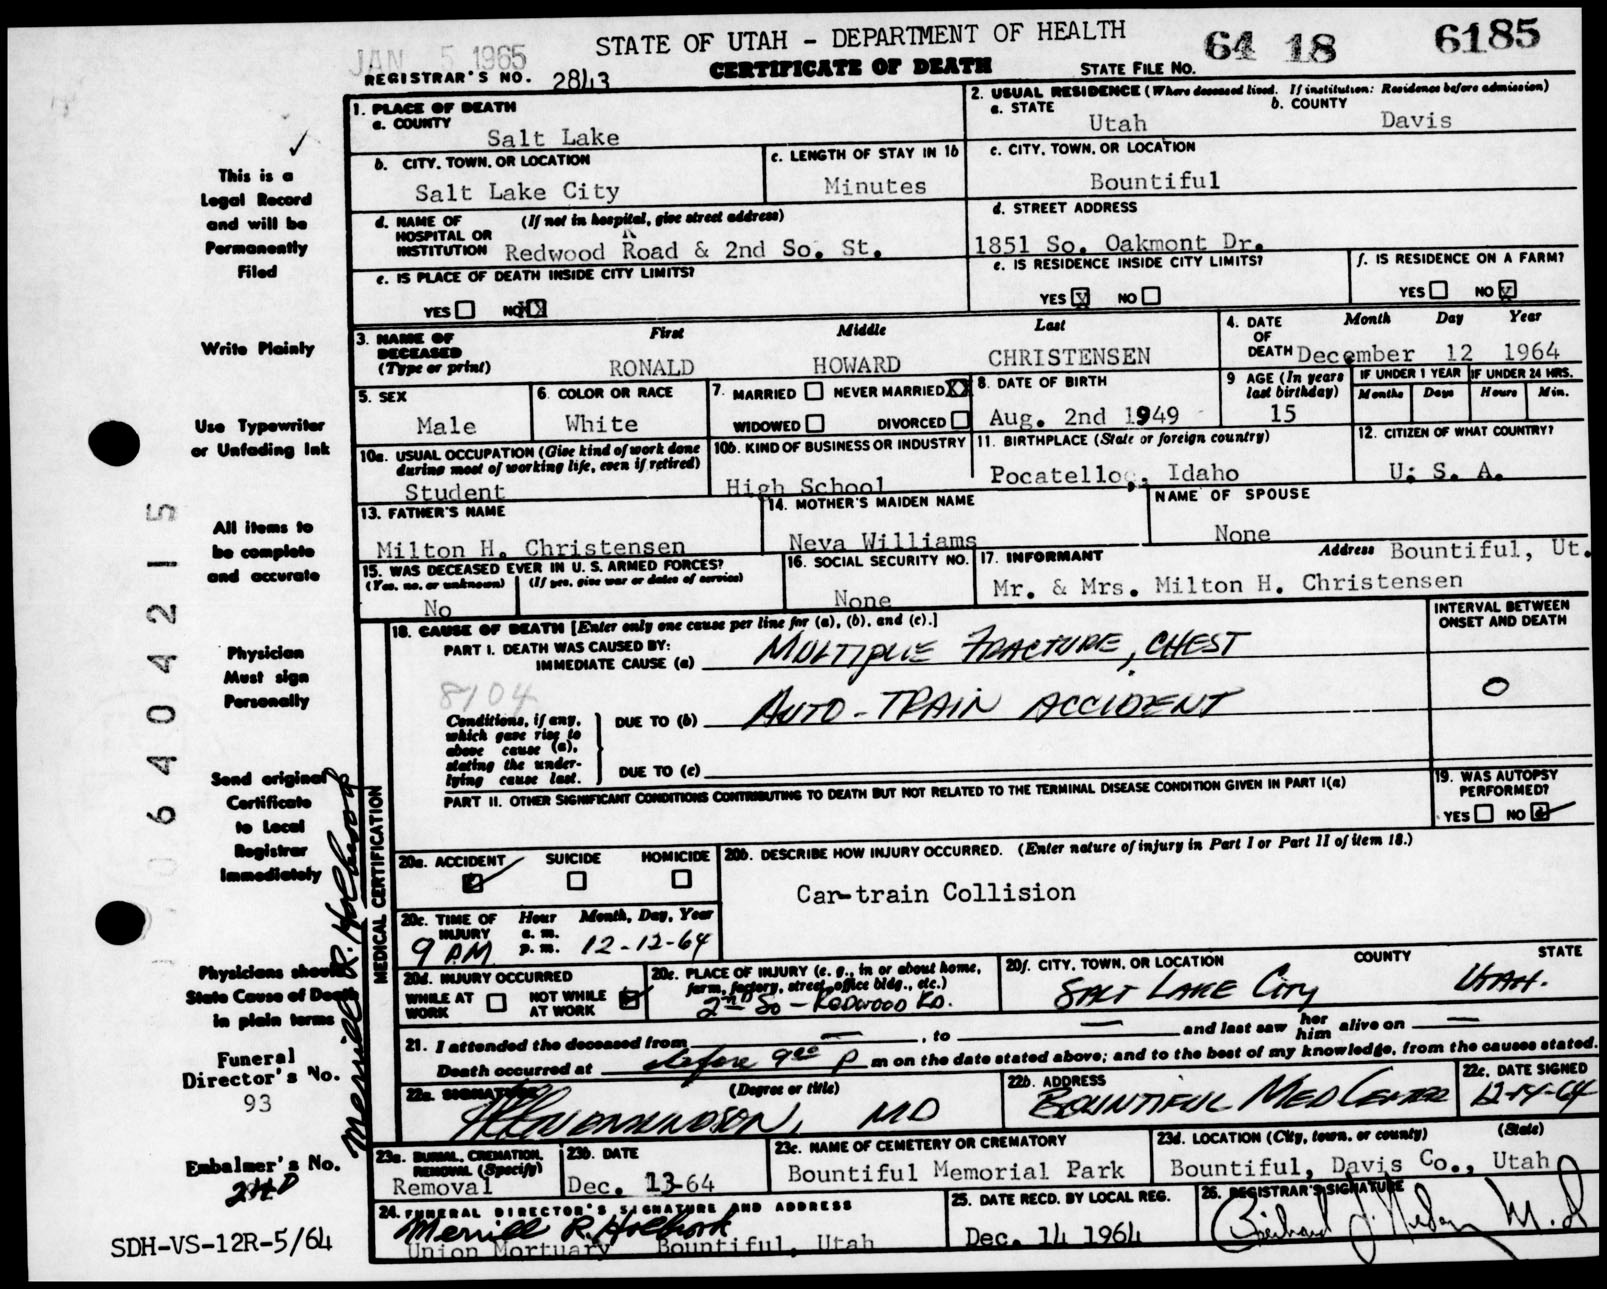 JAN 5 1965
STATE OF UTAH - DEPARTMENT OF HEALTH
64 18 6185
REGISTRAR'S NO. 2843
CERTIFICATE OF DEATH
STATE FILE NO.
1. PLACE OF DEATH
a. COUNTY
Salt Lake
2. USUAL RESIDENCE (Where deceased lived. If institution: Residence before admission)
a. STATE
Utah
b. COUNTY
Davis
b. CITY, TOWN, OR LOCATION
Salt Lake City
c. LENGTH OF STAY IN 1b
Minutes
c. CITY, TOWN, OR LOCATION
Bountiful
d. NAME OF HOSPITAL OR INSTITUTION (If not in hospital, give street address)
Redwood Road & 2nd So. St.
d. STREET ADDRESS
1851 So. Oakmont Dr.
e. IS PLACE OF DEATH INSIDE CITY LIMITS?
YES NO X
e. IS RESIDENCE INSIDE CITY LIMITS?
YES X NO
f. IS RESIDENCE ON A FARM?
YES NO X
3. NAME OF DECEASED (Type or print)
First Middle Last
RONALD HOWARD CHRISTENSEN
4. DATE OF DEATH
Month Day Year
December 12 1964
5. SEX
Male
6. COLOR OR RACE
White
7. MARRIED NEVER MARRIED X
WIDOWED DIVORCED
8. DATE OF BIRTH
Aug. 2nd 1949
9 AGE (In years last birthday)
15
IF UNDER 1 YEAR
Months Days
IF UNDER 24 HRS.
Hours Min.
10a. USUAL OCCUPATION (Give kind of work done during most of working life, even if retired)
Student
10b. KIND OF BUSINESS OR INDUSTRY
High School
11. BIRTHPLACE (State or foreign country)
Pocatello, Idaho
12. CITIZEN OF WHAT COUNTRY?
U. S. A.
13. FATHER'S NAME
Milton H. Christensen
14. MOTHER'S MAIDEN NAME
Neva Williams
NAME OF SPOUSE
None
15. WAS DECEASED EVER IN U. S. ARMED FORCES?
(Yes, no, or unknown) (If yes, give war or dates of service)
No
16. SOCIAL SECURITY NO.
None
17. INFORMANT
Address Bountiful, Ut.
Mr. & Mrs. Milton H. Christensen
MEDICAL CERTIFICATION
18. CAUSE OF DEATH [Enter only one cause per line for (a), (b), and (c).]
INTERVAL BETWEEN ONSET AND DEATH
PART I. DEATH WAS CAUSED BY:
IMMEDIATE CAUSE (a) MULTIPLE FRACTURE, CHEST
8104
O
Conditions, if any, which gave rise to above cause (a), stating the underlying cause last.
DUE TO (b) AUTO-TRAIN ACCIDENT
DUE TO (c)
PART II. OTHER SIGNIFICANT CONDITIONS CONTRIBUTING TO DEATH BUT NOT RELATED TO THE TERMINAL DISEASE CONDITION GIVEN IN PART I(a)
19. WAS AUTOPSY PERFORMED?
YES NO
20a. ACCIDENT SUICIDE HOMICIDE
20b. DESCRIBE HOW INJURY OCCURRED. (Enter nature of injury in Part I or Part II of item 18.)
Car-train Collision
20c. TIME OF INJURY
Hour a. m. p. m. Month, Day, Year
9 P.M. 12-12-64
20d. INJURY OCCURRED
WHILE AT WORK NOT WHILE AT WORK
20e. PLACE OF INJURY (e. g., in or about home, farm, factory, street, office bldg., etc.)
2nd So - Redwood Rd.
20f. CITY, TOWN, OR LOCATION COUNTY STATE
SALT LAKE CITY UTAH.
21. I attended the deceased from — , to — and last saw her him alive on —
Death occurred at before 9 00 P m on the date stated above; and to the best of my knowledge, from the causes stated.
22a. SIGNATURE (Degree or title)
MD
22b. ADDRESS
BOUNTIFUL MED CENTER
22c. DATE SIGNED
12-14-64
23a. BURIAL, CREMATION, REMOVAL (Specify)
Removal
23b. DATE
Dec. 13-64
23c. NAME OF CEMETERY OR CREMATORY
Bountiful Memorial Park
23d. LOCATION (City, town, or county) (State)
Bountiful, Davis Co., Utah
24. FUNERAL DIRECTOR'S SIGNATURE AND ADDRESS
Merrill R. Holbrook
Union Mortuary Bountiful, Utah
25. DATE RECD. BY LOCAL REG.
Dec. 14 1964
26. REGISTRAR'S SIGNATURE
This is a
Legal Record
and will be
Permanently
Filed
Write Plainly
Use Typewriter
or Unfading Ink
All items to
be complete
and accurate
Physician
Must sign
Personally
Send original
Certificate
to Local
Registrar
Immediately
Physicians should
State Cause of Death
in plain terms
Funeral
Director's No.
93
Embalmer's No.
Merrill R. Holbrook
0 6 4 0 4 2 1 5
SDH-VS-12R-5/64